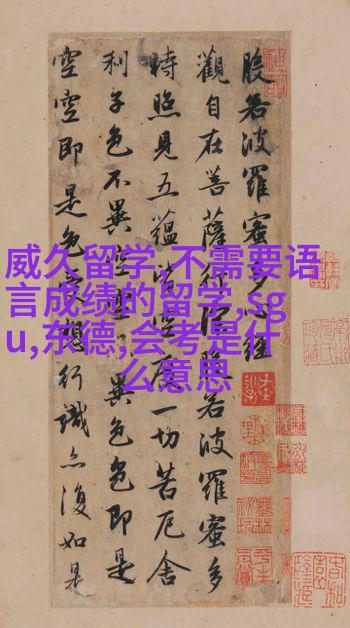 般若波羅蜜多心經
觀自在菩薩行深般若波羅蜜多
時照見五蘊皆空度一切苦厄舍
利子色不異空空不異色色即是
空空即是色受想行識亦復如是
威久留学,不需要语
言成绩的留学,sg
u,东德,会考是什
么意思